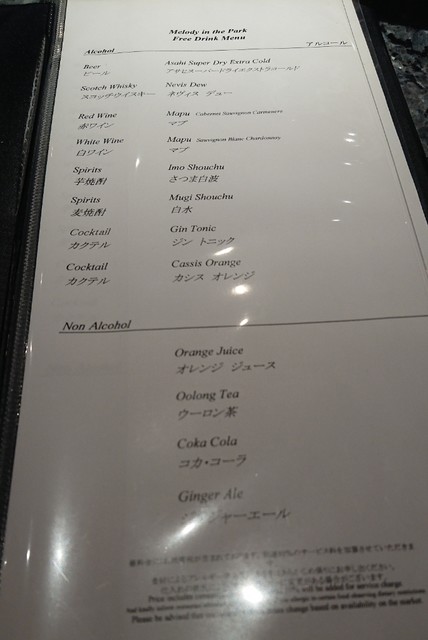 Melody in the Park
Free Drink Menu
Alcohol アルコール
Beer Asahi Super Dry Extra Cold
ビール アサヒスーパードライエクストラコールド
Scotch Whisky Nevis Dew
スコッチウイスキー ネヴィス デュー
Red Wine Mapu Cabernet Sauvignon Carmenere
赤ワイン マプ
White Wine Mapu Sauvignon Blanc Chardonnay
白ワイン マプ
Spirits Imo Shouchu
芋焼酎 さつま白波
Spirits Mugi Shouchu
麦焼酎 白水
Cocktail Gin Tonic
カクテル ジン トニック
Cocktail Cassis Orange
カクテル カシス オレンジ
Non Alcohol
Orange Juice
オレンジ ジュース
Oolong Tea
ウーロン茶
Coka Cola
コカ・コーラ
Ginger Ale
ジンジャーエール
will be added for service charge.
Please be advised that change based on availability on the market.